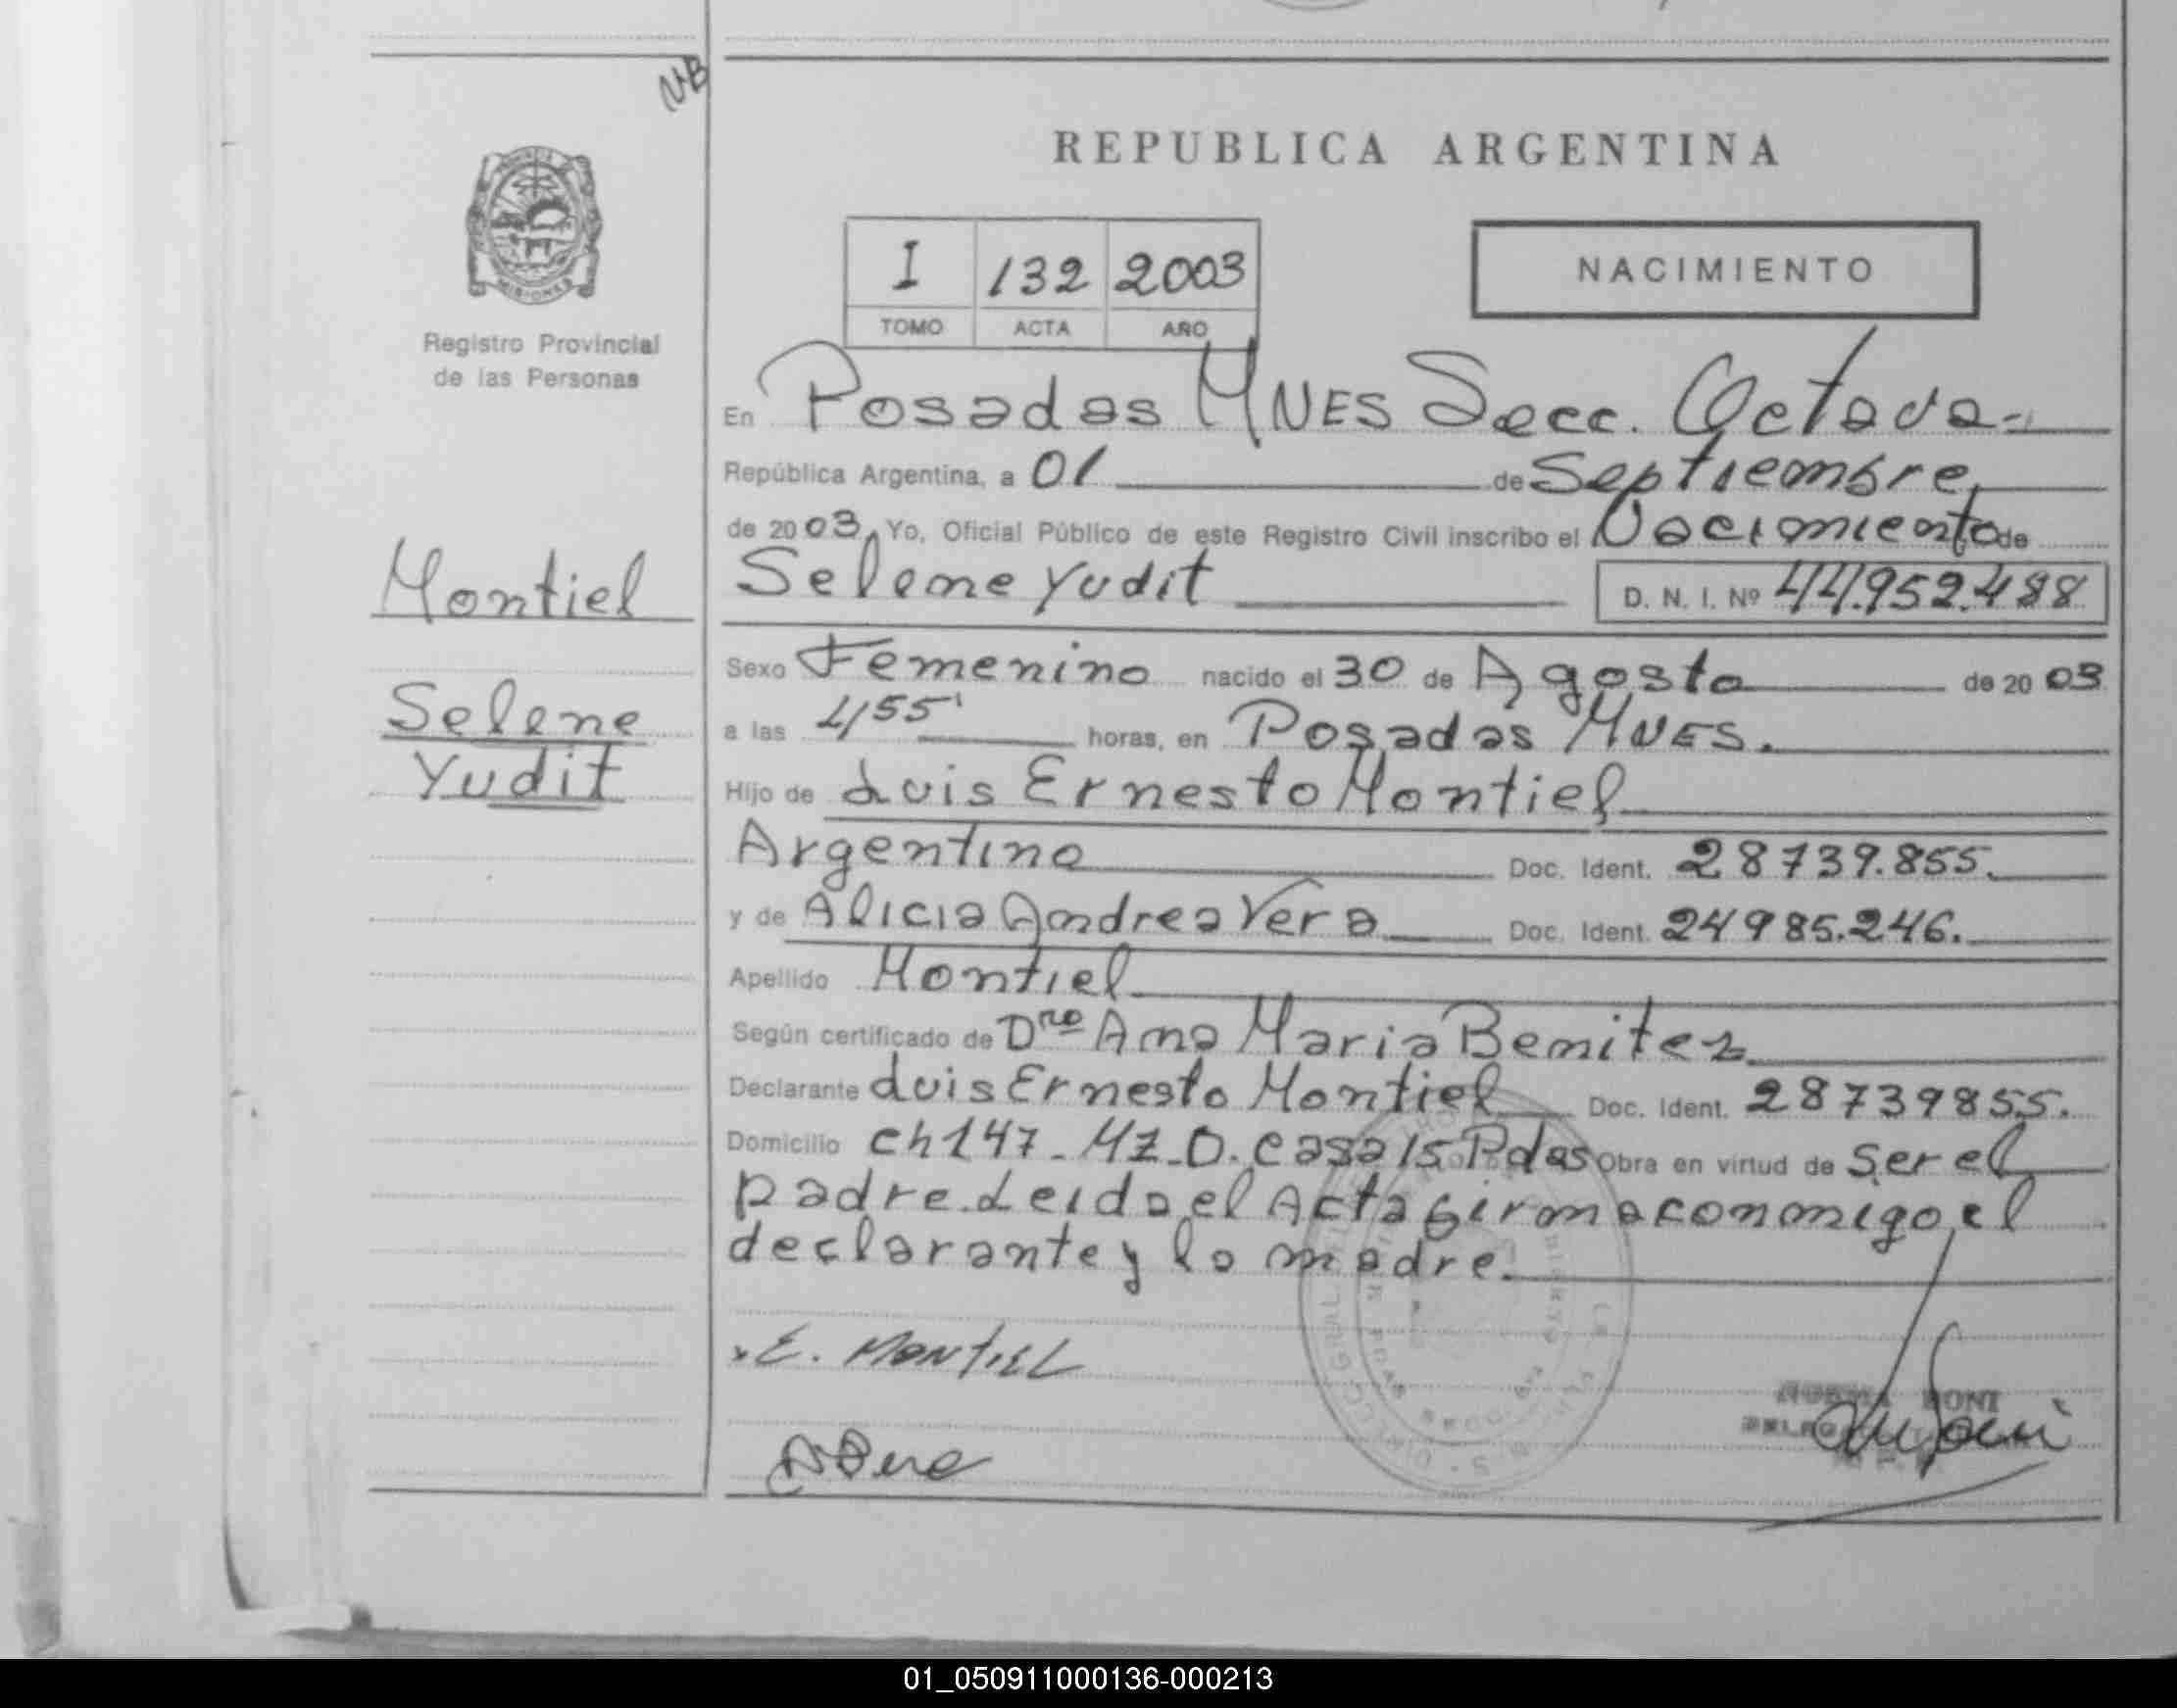 NB
REPUBLICA ARGENTINA
MISIONES
Registro Provincial
de las Personas
I 132 2003
TOMO ACTA AÑO
NACIMIENTO
En Posadas MNES Secc. Octava.=
República Argentina, a 01 de Septiembre,
de 2003, Yo, Oficial Público de este Registro Civil inscribo el Nacimiento de
Montiel
Selene Yudit D. N. I. Nº 44.952.488
Sexo Femenino nacido el 30 de Agosto de 2003
Selene
Yudit
a las 455' horas, en Posadas MNES.
Hijo de Luis Ernesto Montiel
Argentino Doc. Ident. 28739.855.
y de Alicia Andrea Vera Doc. Ident. 24985.246.
Apellido Montiel
Según certificado de Dra Ana Maria Benitez
Declarante Luis Ernesto Montiel Doc. Ident. 28739855.
Domicilio Ch147-MZ-D. Casa 15 Pdas Obra en virtud de Ser el
padre. Leida el Acta firma conmigo el
declarante y la madre.
E. MONTIEL
01_050911000136-000213